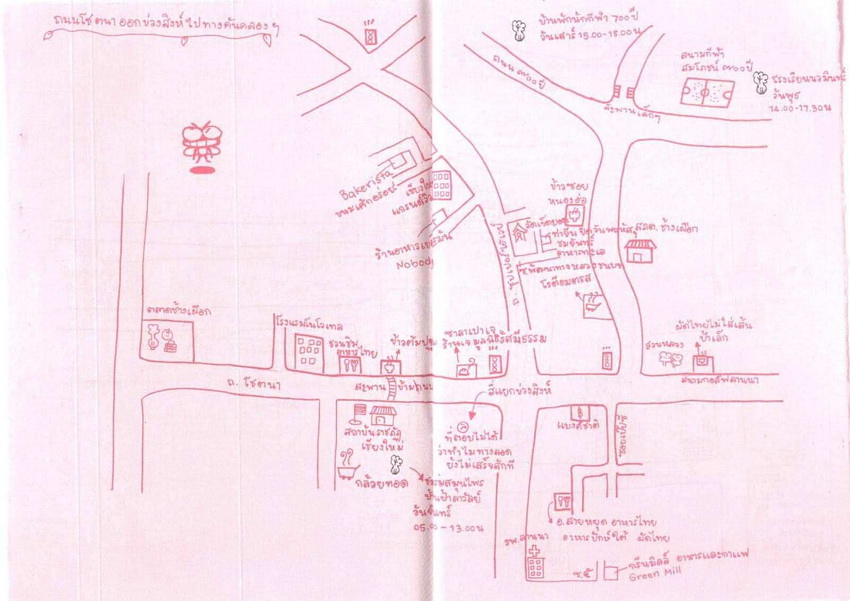 ถนนโชตนา ออกข่วงสิงห์ ไปทางคันคลองฯ
บ้านพักนักกีฬา 700 ปี
วันเสาร์ 15.00-18.00น
ถนน ๗๐๐ปี
สนามกีฬา
สมโภชน์ ๗๐๐ปี
โรงเรียนนวมินทร์
วันพุธ
14.00-17.30น
สะพานเล็กๆ
Bakerista
ขนมเค้กอร่อย
เชียงใหม่
แกรนด์วิว
ร้านอาหาร
Nobody
ข้าวซอย
อาหารทะเล
ช้างเผือก
ตลาดช้างเผือก
โรงแรมโนโวเทล
ชวนชิม
อาหารไทย
ข้าวต้ม
ซาลาเปา
ร้านเจ
สวนหลวง
ผัดไทยไม่ใส่เส้น
ป้าเล็ก
สนามกอล์ฟลานนา
ถ. โชตนา
สะพาน ข้ามถนน
สี่แยกข่วงสิงห์
แบงค์ชาติ
สถาบันราชภัฏ
เชียงใหม่
ที่ตอบไม่ได้
ว่าทำไมทางลอด
ยังไม่เสร็จสักที
กล้วยทอด
วันจันทร์
05.00 - 13.00น
อ.สายหยุด อาหารไทย
อาหารปักษ์ใต้ ผัดไทย
รพ.ลานนา
กรีนมิลล์ อาหารและกาแฟ
Green Mill